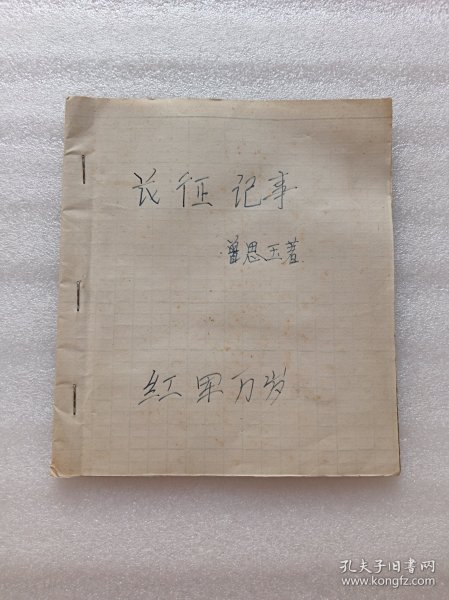 长征记事
曾思玉著
红军万岁
孔夫子旧书网
www.kongfz.com